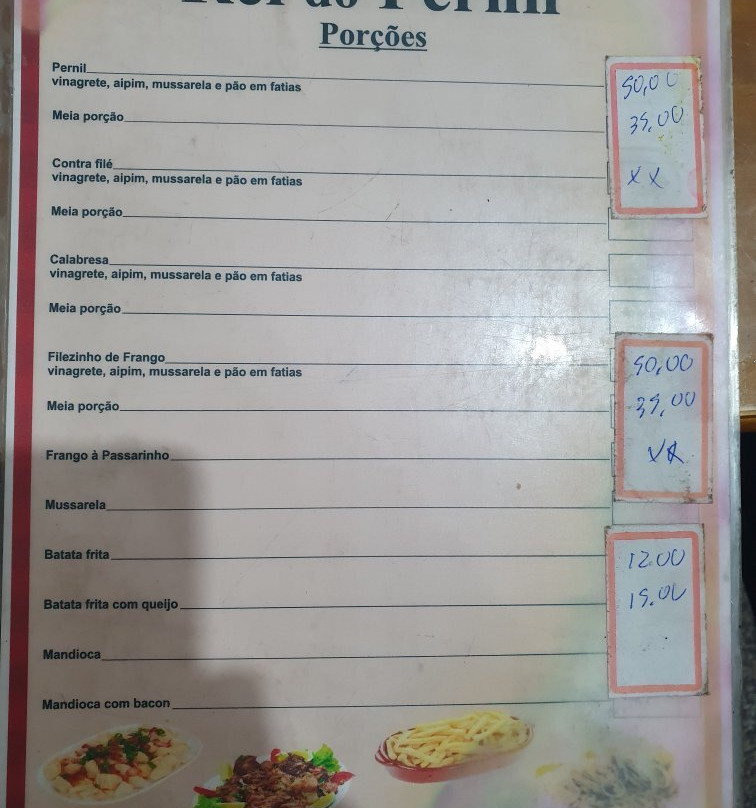 Porções
Pernil 50,00
vinagrete, aipim, mussarela e pão em fatias
Meia porção 35,00
Contra filé XX
vinagrete, aipim, mussarela e pão em fatias
Meia porção
Calabresa
vinagrete, aipim, mussarela e pão em fatias
Meia porção
Filezinho de Frango 50,00
vinagrete, aipim, mussarela e pão em fatias
Meia porção 35,00
Frango à Passarinho
Mussarela
Batata frita 12.00
Batata frita com queijo 15.00
Mandioca
Mandioca com bacon